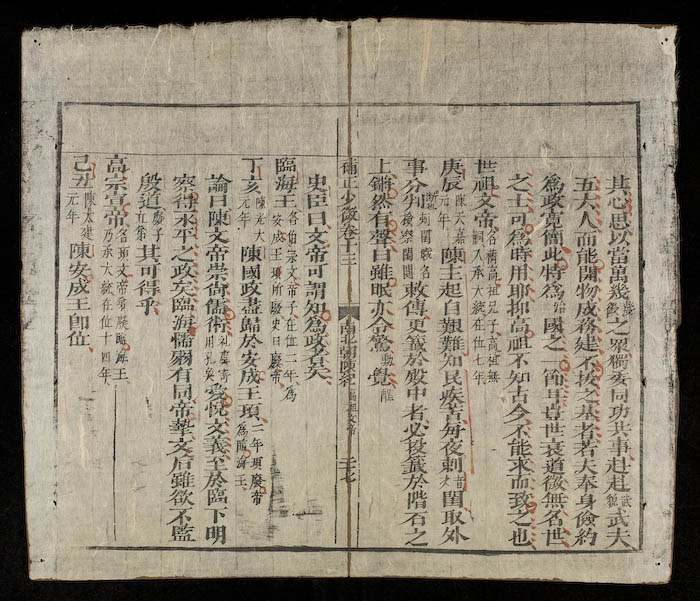 其心思以當萬幾之衆獨委同功共事赳赳武夫
五六人而能開物成務建不拔之基者若夫奉身儉約
爲政寬簡此特爲治國之一節耳豈世衰道微無名世
之士可爲時用耶抑高祖不知古今不能求而致之也
世祖文帝名蒨高祖兄子高祖無嗣入承大統在位七年
庚辰陳天嘉元年陳主起自艱難知民疾苦每夜刺閨取外
事分判者敕傳更籖於殿中者必投籖於階石之
上鏘然有聲曰雖眠亦令驚覺
補正少微卷十三 南北朝陳紀 高祖文帝 二十七
史臣曰文帝可謂知爲政者矣
臨海王名伯宗文帝子在位二年爲安成王頊所廢史曰廢帝
丁亥陳光大元年陳國政盡歸於安成王頊二年頊廢帝爲臨海王
論曰陳文帝崇尚儒術愛悅文義至於臨下明
察得永平之政矣臨海懦弱有同帝摯文后雖欲不監
殷道其可得乎
高宗宣帝名頊文帝弟廢臨海王乃承大統在位十四年
己丑陳太建元年陳安成王卽位